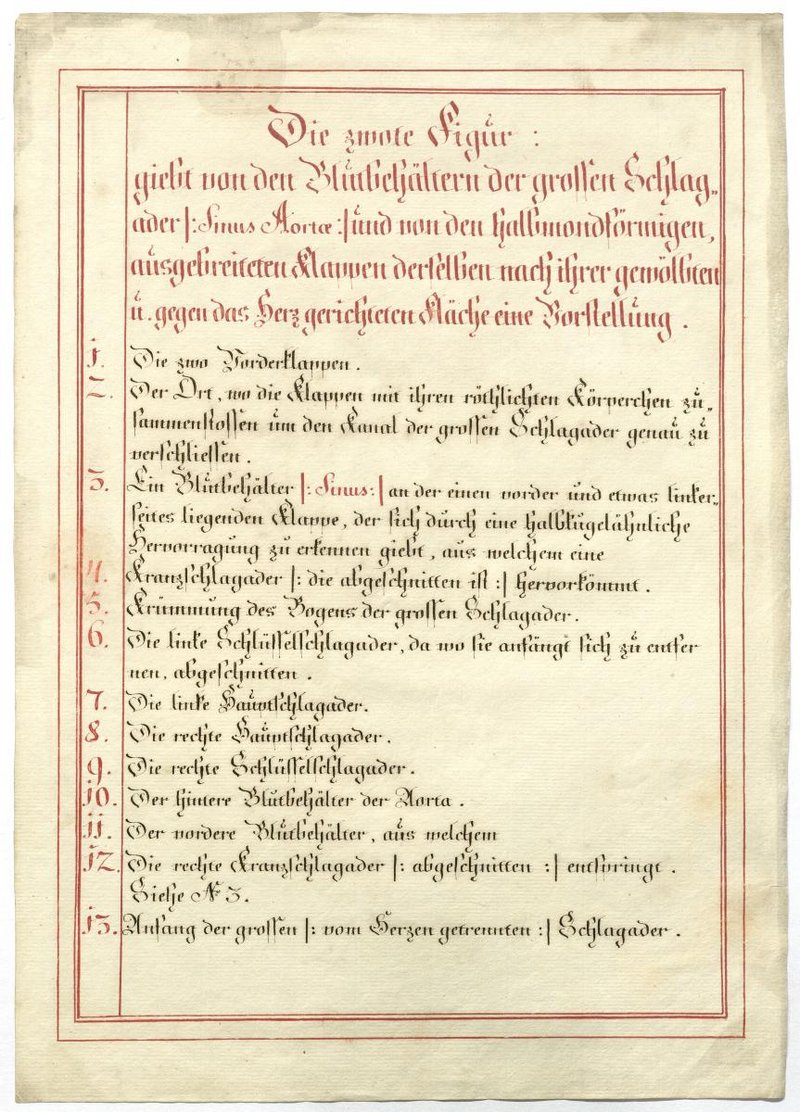 Die zwote Figur :
giebt von den Blutbehältern der grossen Schlag„
ader |: Sinus Aortæ :| und von den halbmondförmigen,
ausgebreiteten Klappen derselben nach ihrer gewölbten
u. gegen das Herz gerichteten Fläche eine Vorstellung .
1. Die zwo Vorderklappen .
2. Der Ort, wo die Klappen mit ihren röthlichten Körperchen zu„
sammenstossen um den Kanal der grossen Schlagader genau zu
verschliessen .
3. Ein Blutbehälter |: Sinus :| an der einen vorder und etwas linker„
seites liegenden Klappe, der sich durch eine halbkugelähnliche
Hervorragung zu erkennen giebt, aus welchem eine
4. Kranzschlagader |: die abgeschnitten ist :| hervorkömmt .
5. Krümmung des Bogens der grossen Schlagader .
6. Die linke Schlüsselschlagader, da wo sie anfängt sich zu entfer
nen, abgeschnitten .
7. Die linke Hauptschlagader.
8. Die rechte Hauptschlagader .
9. Die rechte Schlüsselschlagader .
10. Der hintere Blutbehälter der Aorta .
11. Der vordere Blutbehälter, aus welchem
12. Die rechte Kranzschlagader |: abgeschnitten :| entspringt .
Siehe № 3.
13. Anfang der grossen |: vom Herzen getrennten :| Schlagader .